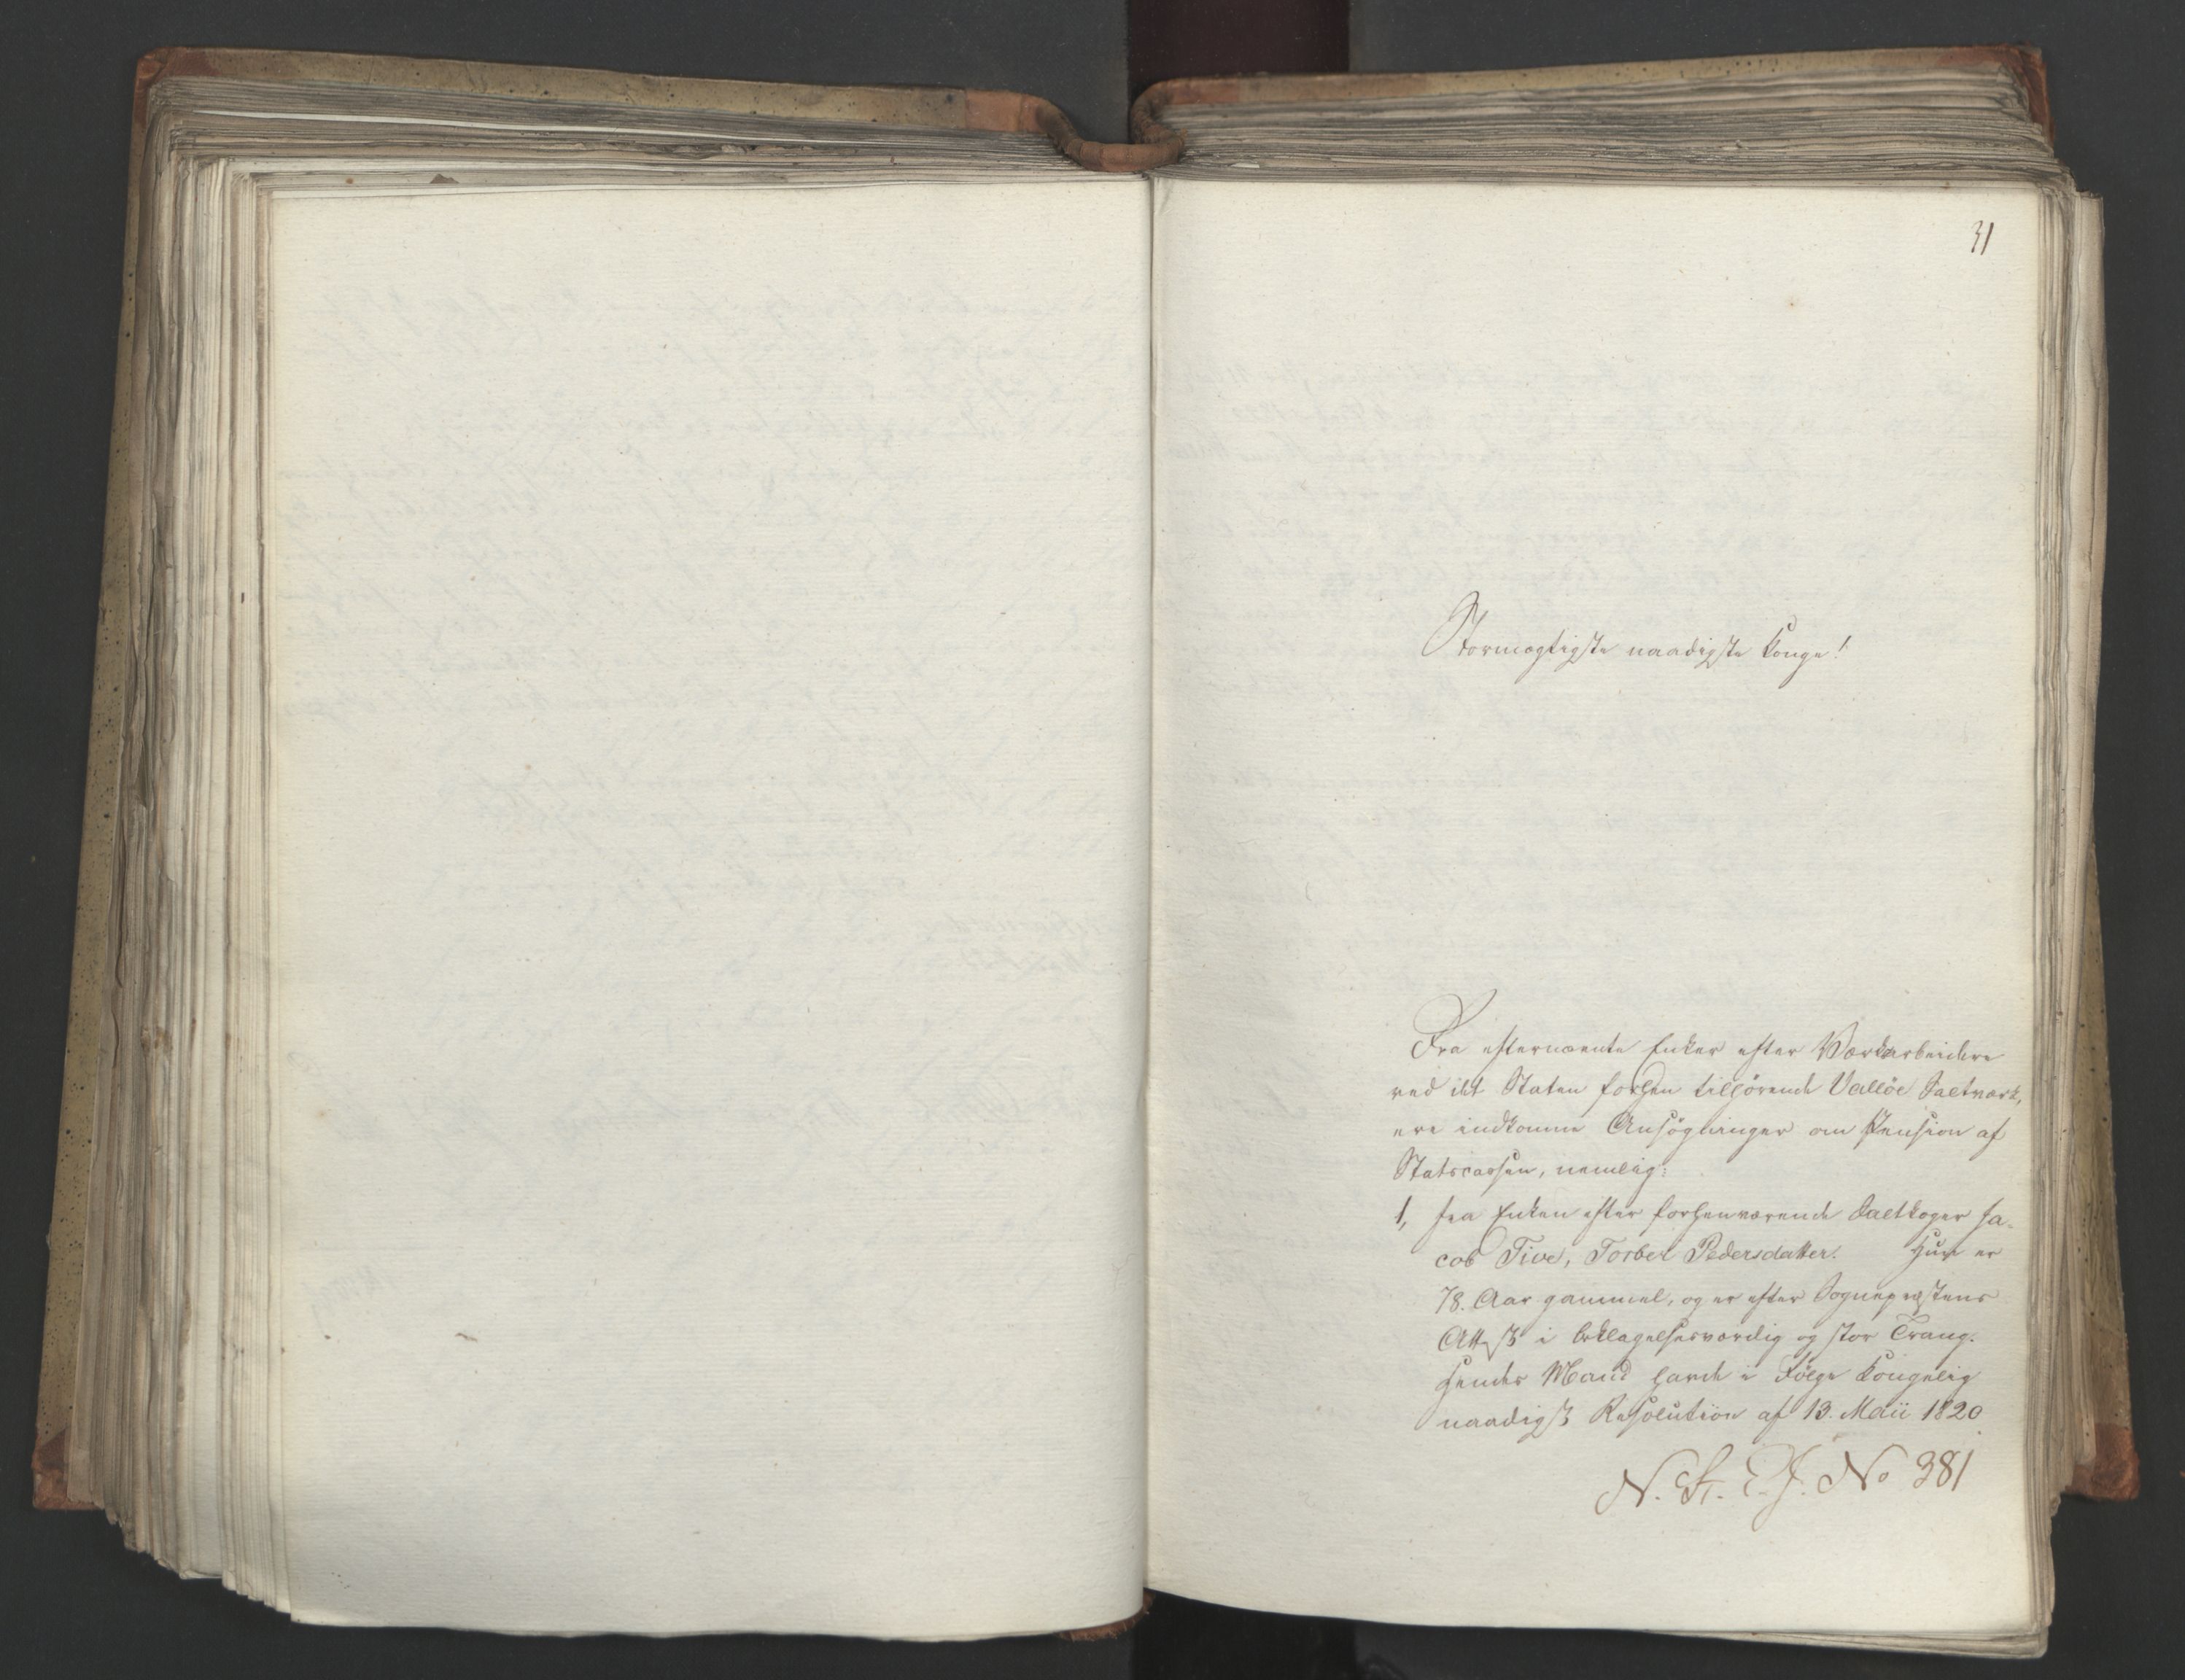 31
Stormægtigste naadigste Konge!
Fra efternævnte Enker efter Værkarbeidere
ved det Staten forhen tilhørende Valløe Saltværk,
ere indkomne Ansøgninger om Pension af
Statscassen, nemlig:
1, fra Enken efter forhenværende Saltkoger Ja-
cob Tive, Torber Pedersdatter. Hun er
78. Aar gammel, og er efter Sognepræstens
Attest i beklagelsesværdig og stor Trang.
Hendes Mand havde i Følge Kongelig
naadigst Resolution af 13. Maii 1820
N. St. E. J. No 381